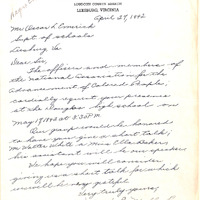 LOUDOUN COUNTY BRANCH
LEESBURG, VIRGINIA
April 29, 1942
Mr Oscar L Emerick
Supt of schools
Leesburg Va
Dear Sir,
The officers and members of
the National Association for the
Advancement of Colored People,
cordially request your presence
at the Douglass high school on
May 17, 1942 at 3:30 P.M.
Our purpose be honored
to have you give a short talk;
Mr Walter White or Miss Ella Baker
his assistant will be our speaker
We hope you will consider
giving us a short talk for which
we will be very grateful
Very truly yours,